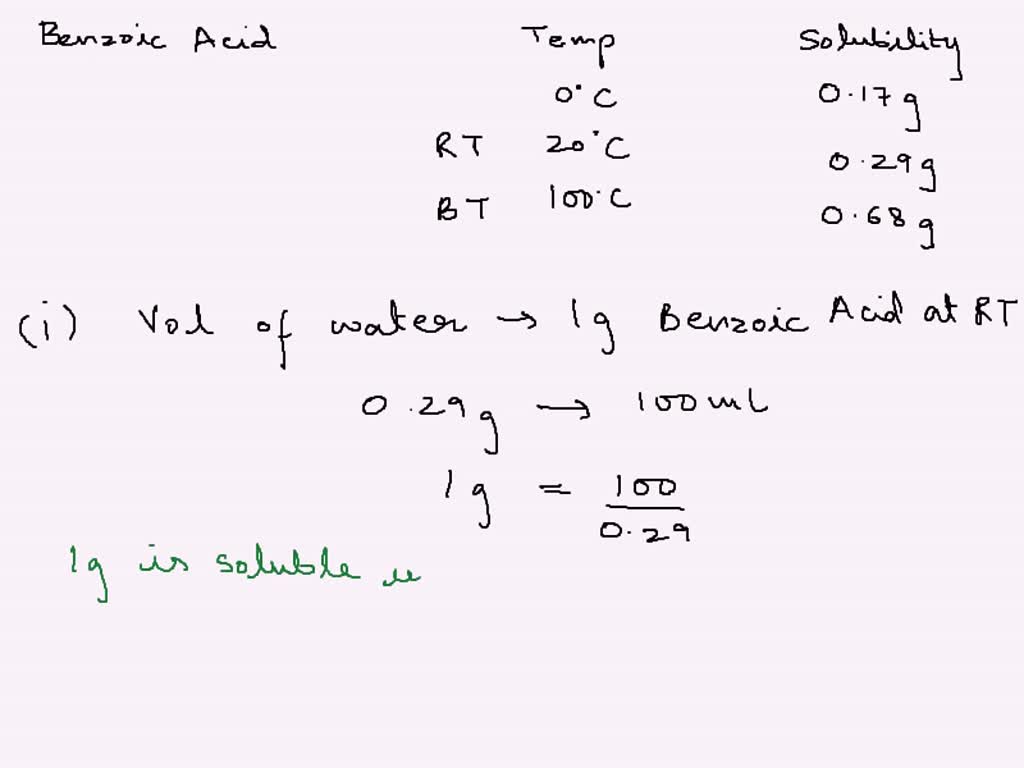 Benzoic Acid Temp Solubility
0°C 0.17g
RT 20°C 0.29g
BT 100°C 0.68g
(i) Vol of water → 1g Benzoic Acid at RT
0.29g → 100mL
1g = 100
0.29
1g is soluble